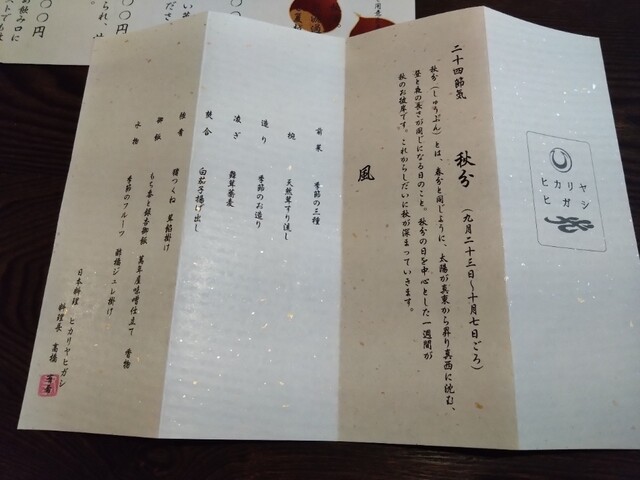 ヒカリヤ
ヒガシ
二十四節気
秋分（九月二十三日～十月七日ごろ）
秋分（しゅうぶん）とは、春分と同じように、太陽が真東から昇り真西に沈む、
昼と夜の長さが同じになる日のこと。秋分の日を中心とした一週間が
秋のお彼岸です。これからしだいに秋が深まっていきます。
風
前菜　季節の三種
椀　天然茸すり流し
造り　季節のお造り
凌ぎ　舞茸蕎麦
焚合　白茄子揚げ出し
強肴　鶏つくね　茸餡掛け
御飯　もち麦と銀杏御飯　萬年屋味噌仕立て　香物
水物　季節のフルーツ　酢橘ジュレ掛け
日本料理　ヒカリヤヒガシ
料理長　高橋
〇〇円
〇〇円